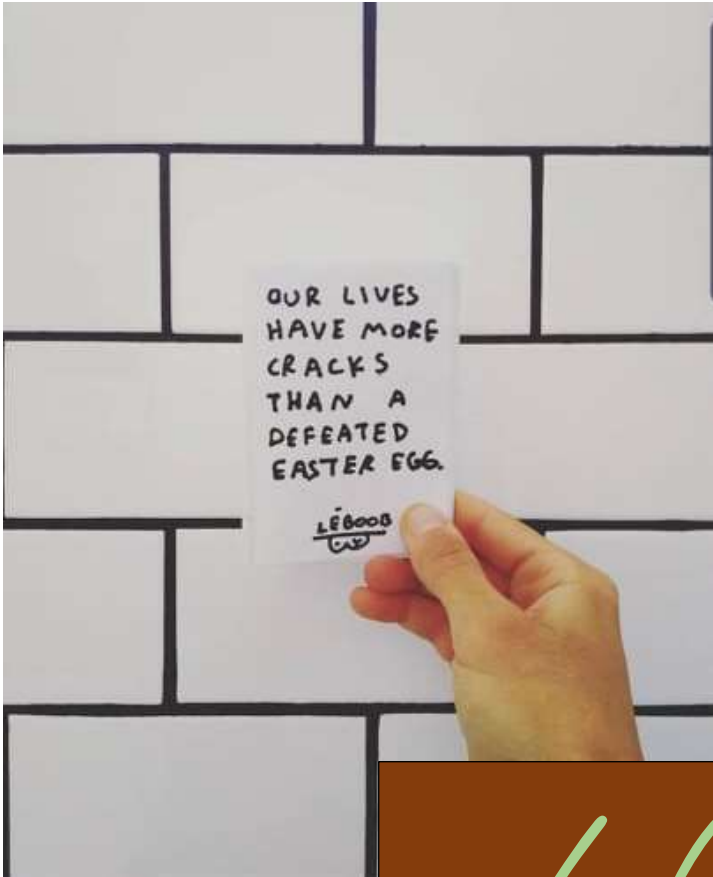 OUR LIVES
HAVE MORE
CRACKS
THAN A
DEFEATED
EASTER EGG.
LÉBOOB